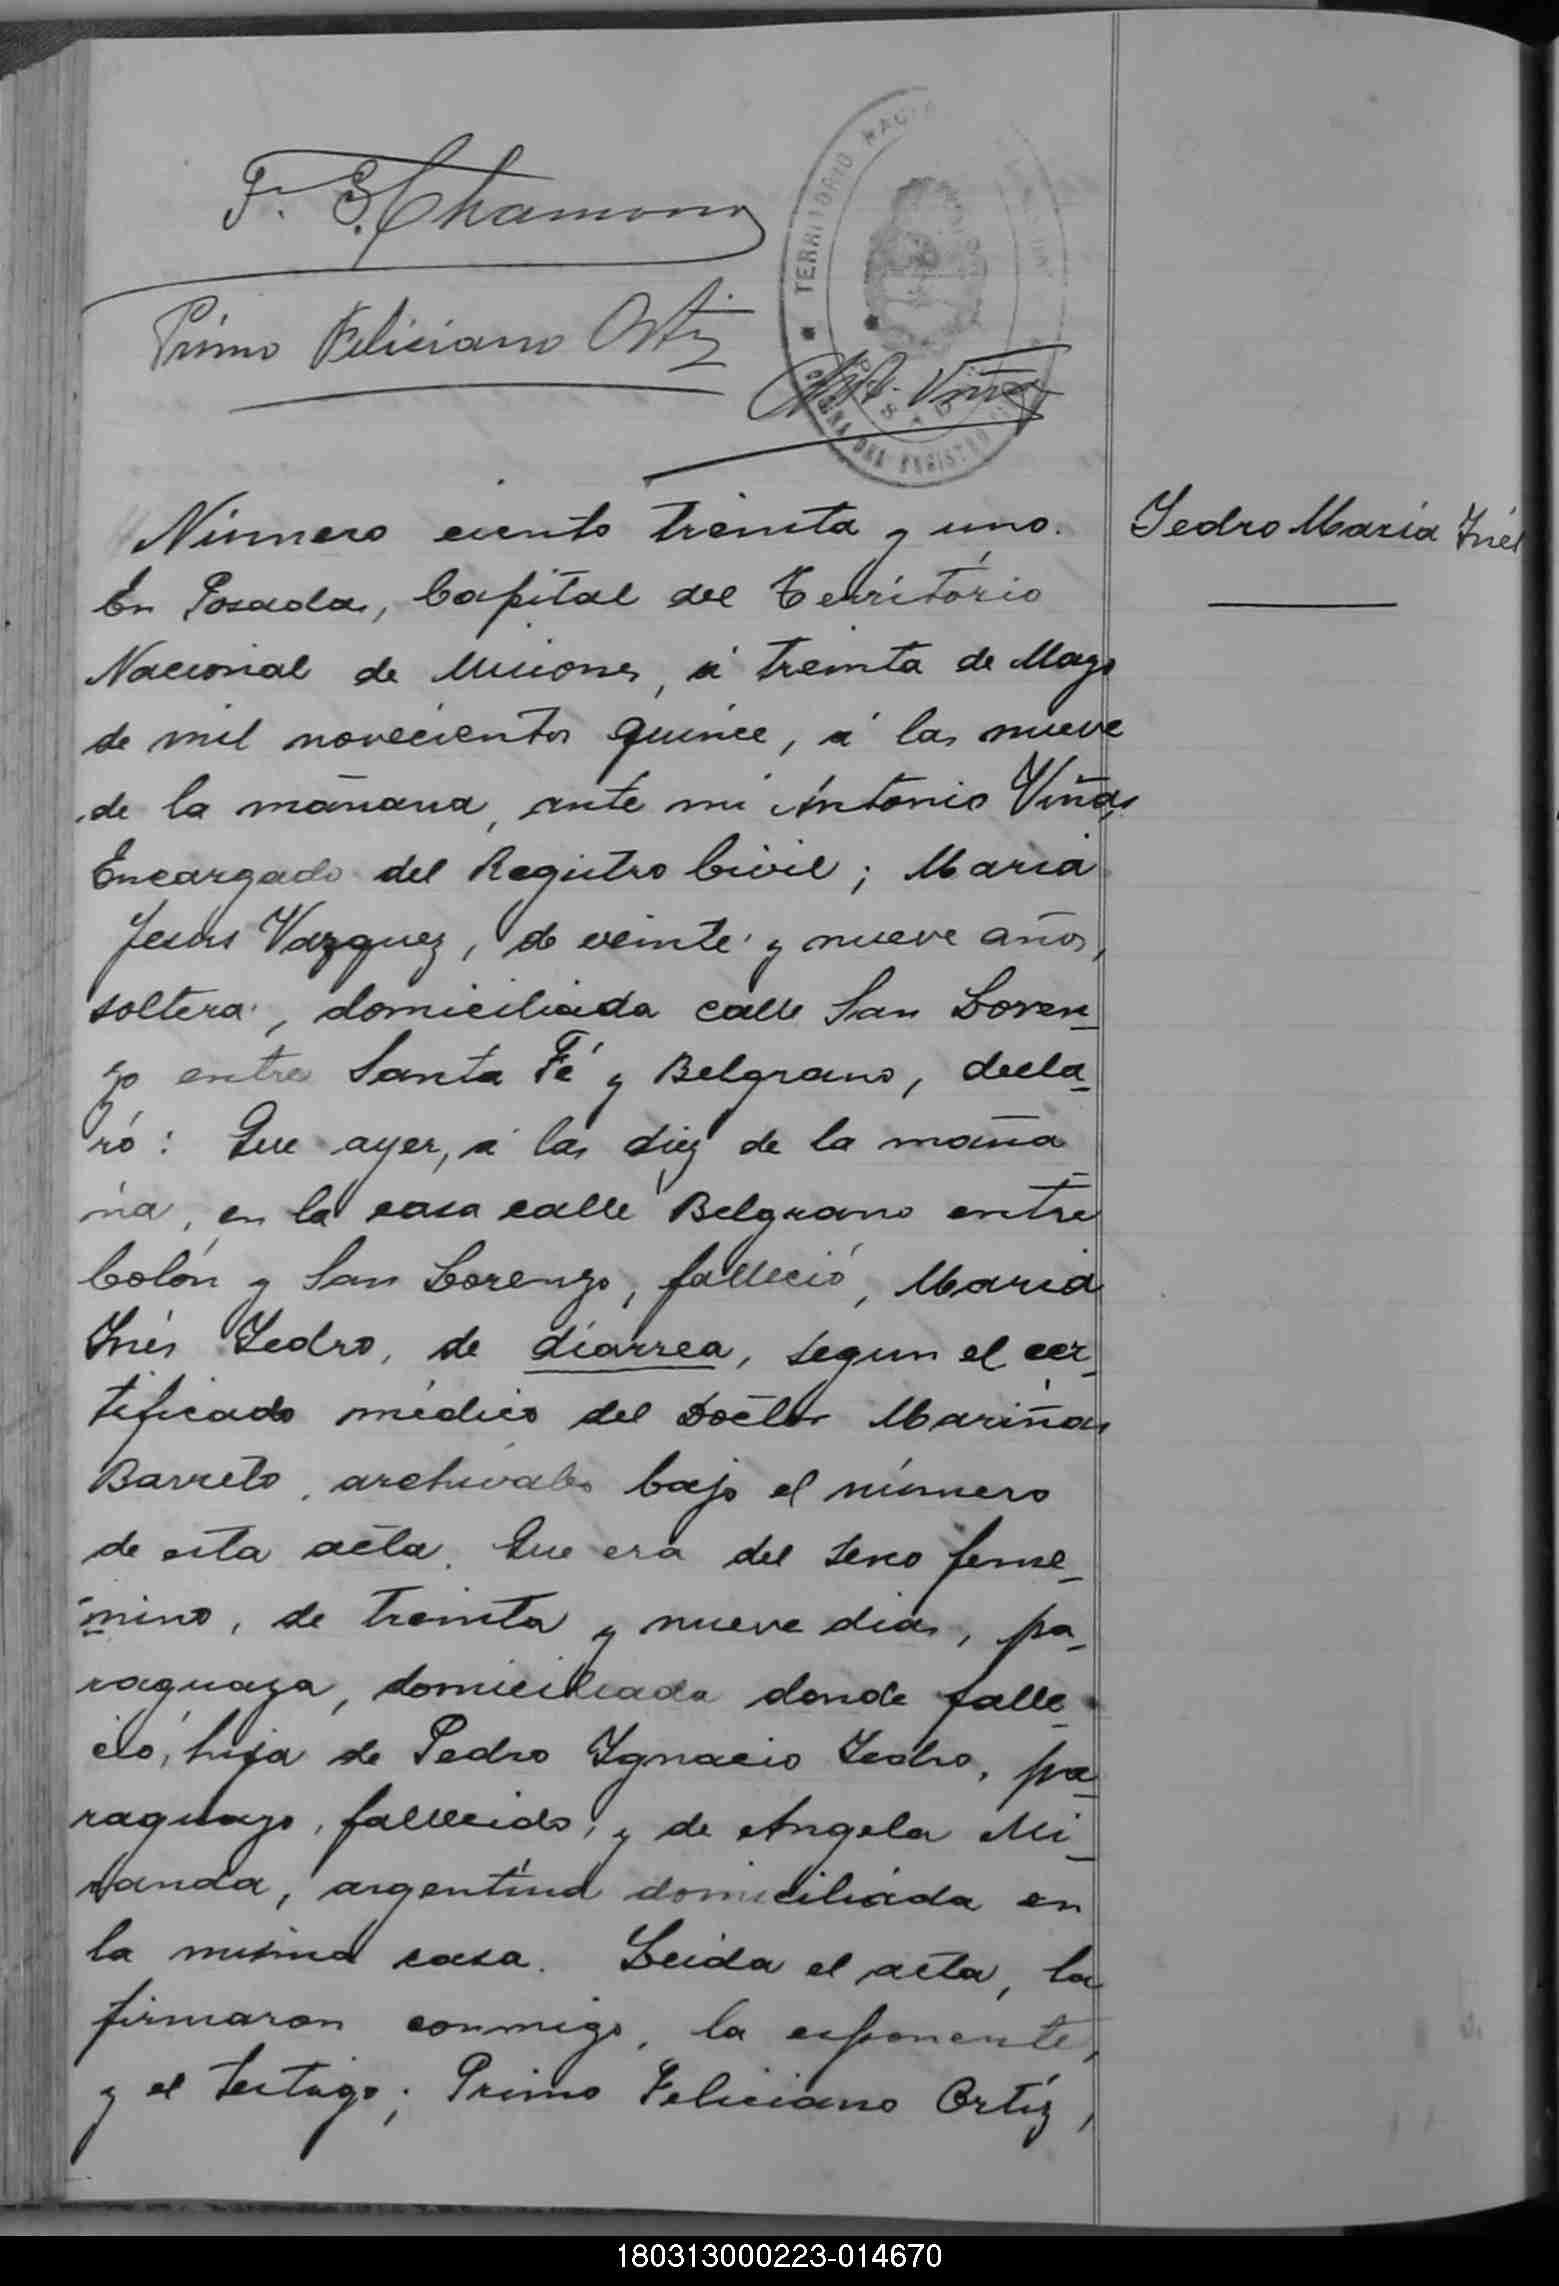 F. G. Chamorro
TERRITORIO NACI
Primo Feliciano Ortiz
Ant. Viñas
Número ciento treinta y uno.
Yedro María Inés
En Posadas, Capital del Territorio
Nacional de Misiones, á treinta de Mayo
de mil novecientos quince, á las nueve
de la mañana, ante mi Antonio Viñas,
Encargado del Registro Civil; Maria
Jesus Vazquez, de veinte y nueve años,
soltera, domiciliada calle San Loren-
zo entre Santa Fé y Belgrano, decla-
ró: Que ayer, á las diez de la maña
na, en la casa calle Belgrano entre
Colón y San Lorenzo, falleció, Maria
Inés Yedro, de diarrea, segun el cer-
tificado médico del Doctor Mariñas
Barreto, archivado bajo el número
de esta acta. Que era del sexo feme-
nino, de treinta y nueve dias, pa-
raguaya, domiciliada donde falle-
ció, hija de Pedro Ygnacio Yedro, pa-
raguayo, fallecido, y de Angela Mi-
randa, argentina domiciliada en
la misma casa. Leida el acta, la
firmaron conmigo, la esponente,
y el testigo; Primo Feliciano Ortíz,
180313000223-014670